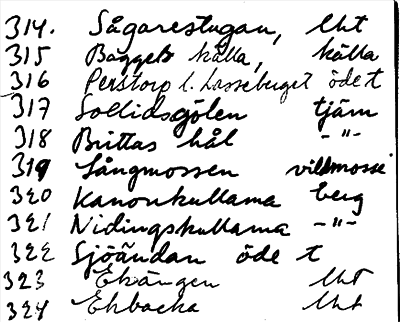 314. Sågarestugan, lht
315 Baggels källa, källa
316 Perstorp l. Lassebuget öde t
317 Sollidsgölen tjärn
318 Brittas hål -"-
319 Långmossen villmosse
320 Kanonkullarna berg
321 Nidingskullarna -"-
322 Sjöändan öde t
323 Ekängen lht
324 Ekbacka lht